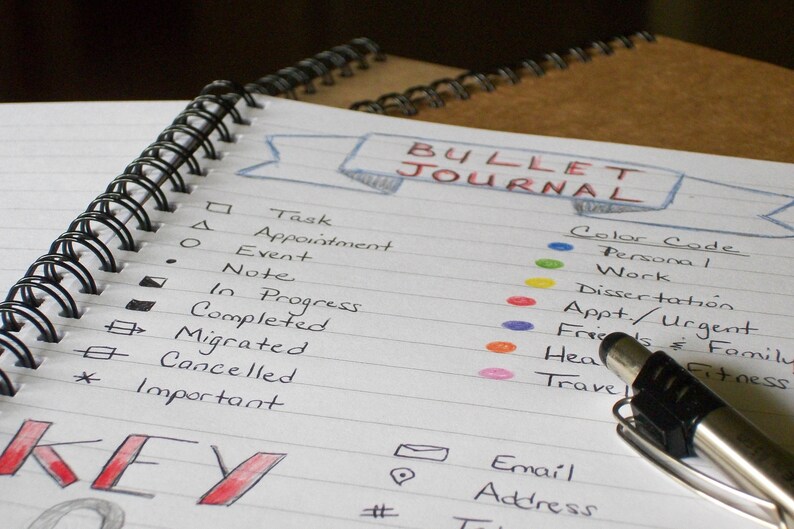 BULLET
JOURNAL
Task
Appointment
Event
Note
In Progress
Completed
Migrated
Cancelled
Important
Color Code
Personal
Work
Dissertation
Appt./Urgent
Friends & Family
Fitness
Travel
KEY
Email
Address
#